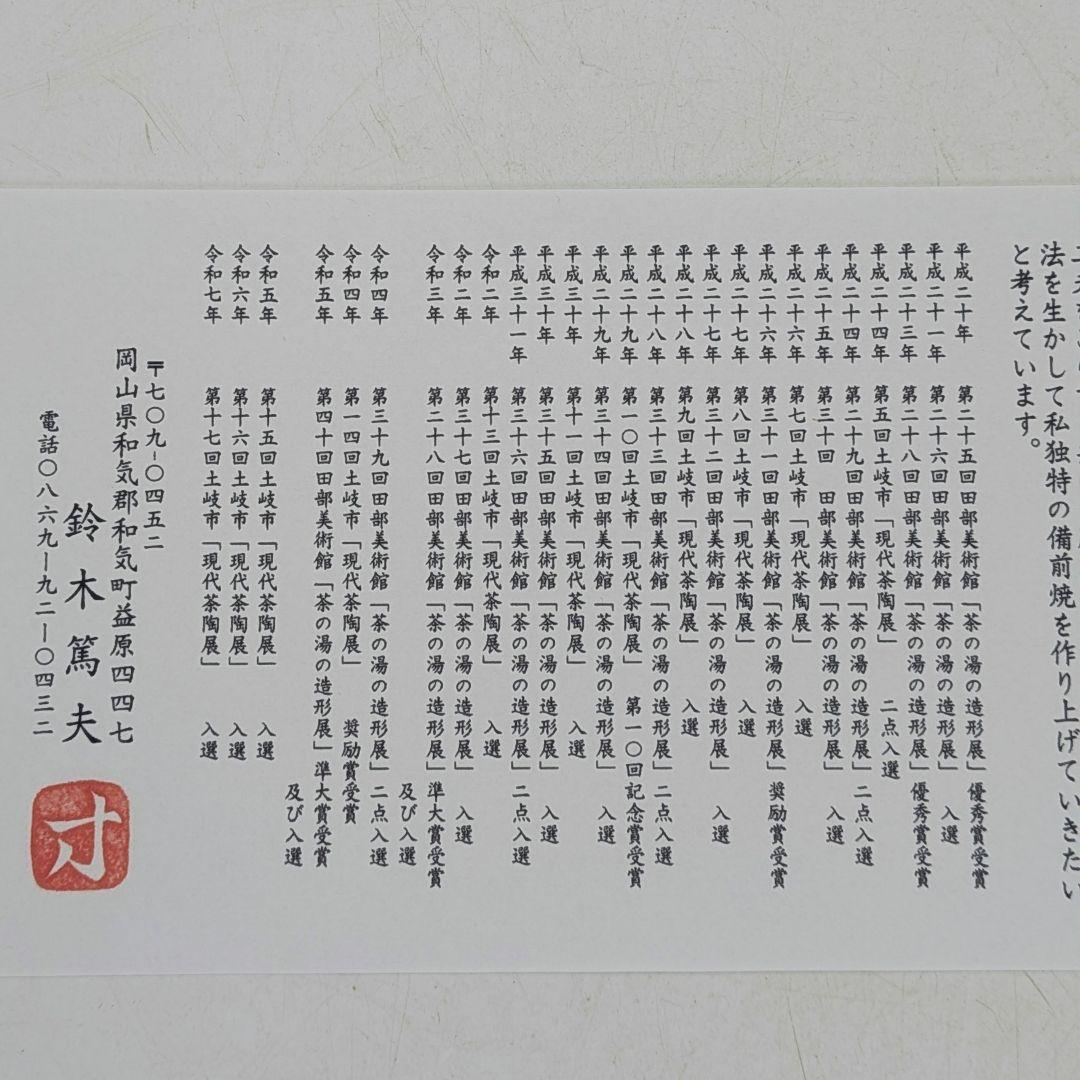 法を生かして私独特の備前焼を作り上げていきたい
と考えています。
平成二十年 第二十五回田部美術館「茶の湯の造形展」優秀賞受賞
平成二十一年 第二十六回田部美術館「茶の湯の造形展」 入選
平成二十三年 第二十八回田部美術館「茶の湯の造形展」優秀賞受賞
平成二十四年 第五回土岐市「現代茶陶展」 二点入選
平成二十四年 第二十九回田部美術館「茶の湯の造形展」二点入選
平成二十五年 第三十回 田部美術館「茶の湯の造形展」 入選
平成二十六年 第七回土岐市「現代茶陶展」 入選
平成二十六年 第三十一回田部美術館「茶の湯の造形展」奨励賞受賞
平成二十七年 第八回土岐市「現代茶陶展」 入選
平成二十七年 第三十二回田部美術館「茶の湯の造形展」 入選
平成二十八年 第九回土岐市「現代茶陶展」 入選
平成二十八年 第三十三回田部美術館「茶の湯の造形展」二点入選
平成二十九年 第一〇回土岐市「現代茶陶展」 第一〇回記念賞受賞
平成二十九年 第三十四回田部美術館「茶の湯の造形展」 入選
平成三十年 第十一回土岐市「現代茶陶展」 入選
平成三十年 第三十五回田部美術館「茶の湯の造形展」 入選
平成三十一年 第三十六回田部美術館「茶の湯の造形展」二点入選
令和二年 第十三回土岐市「現代茶陶展」 入選
令和二年 第三十七回田部美術館「茶の湯の造形展」 入選
令和三年 第二十八回田部美術館「茶の湯の造形展」準大賞受賞
及び入選
令和四年 第三十九回田部美術館「茶の湯の造形展」二点入選
令和四年 第一四回土岐市「現代茶陶展」 奨励賞受賞
令和五年 第四十回田部美術館「茶の湯の造形展」準大賞受賞
及び入選
令和五年 第十五回土岐市「現代茶陶展」 入選
令和六年 第十六回土岐市「現代茶陶展」 入選
令和七年 第十七回土岐市「現代茶陶展」 入選
〒七〇九-〇四五二
岡山県和気郡和気町益原四四七
鈴木篤夫
電話〇八六九ー九二ー〇四三二